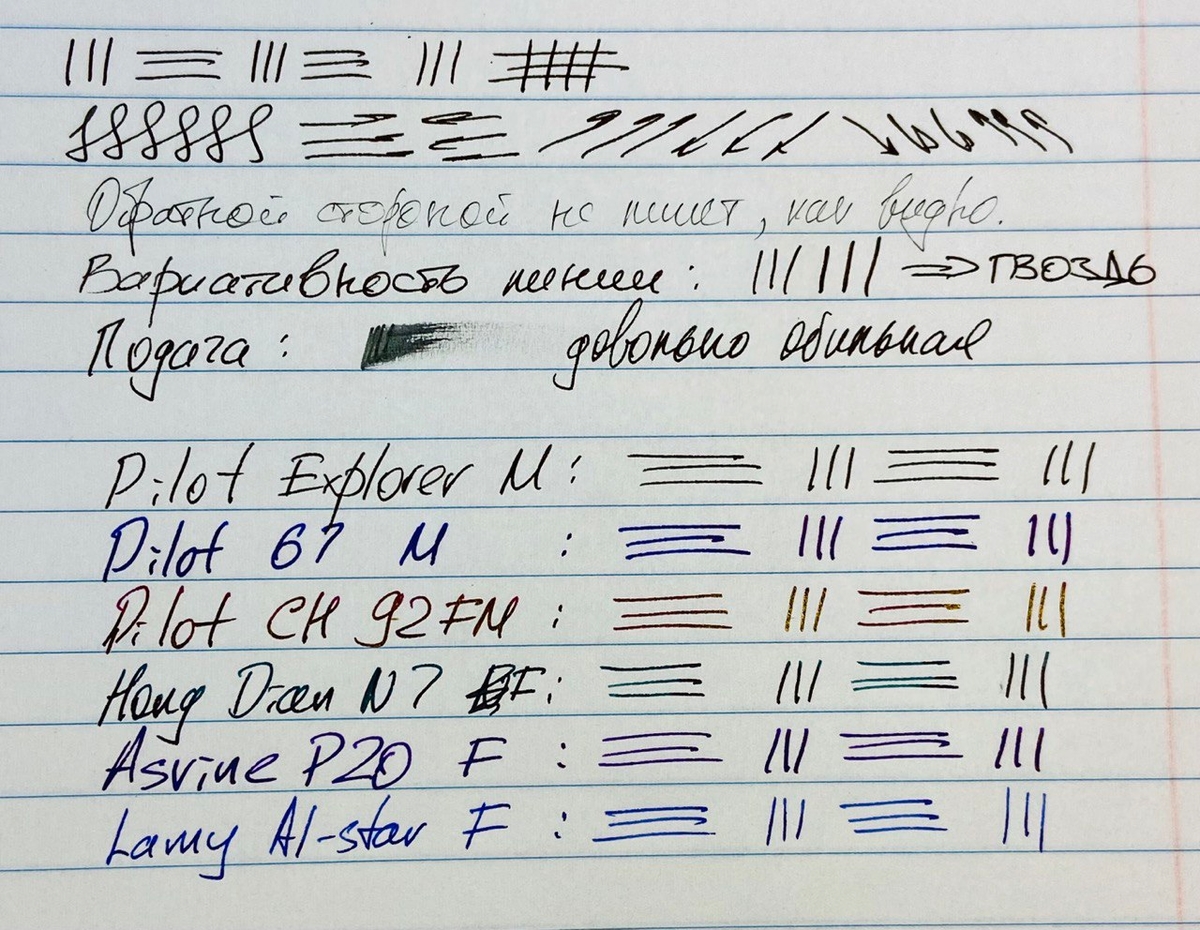 Обратной стороной не пишет, как видно.
Вариативность линии: ⇒ ГВОЗДЬ
Подача: довольно обильная
Pilot Explorer M:
Pilot 67 M :
Pilot CH 92 FM :
Hong Dian N7 F:
Asvine P20 F :
Lamy Al-star F :